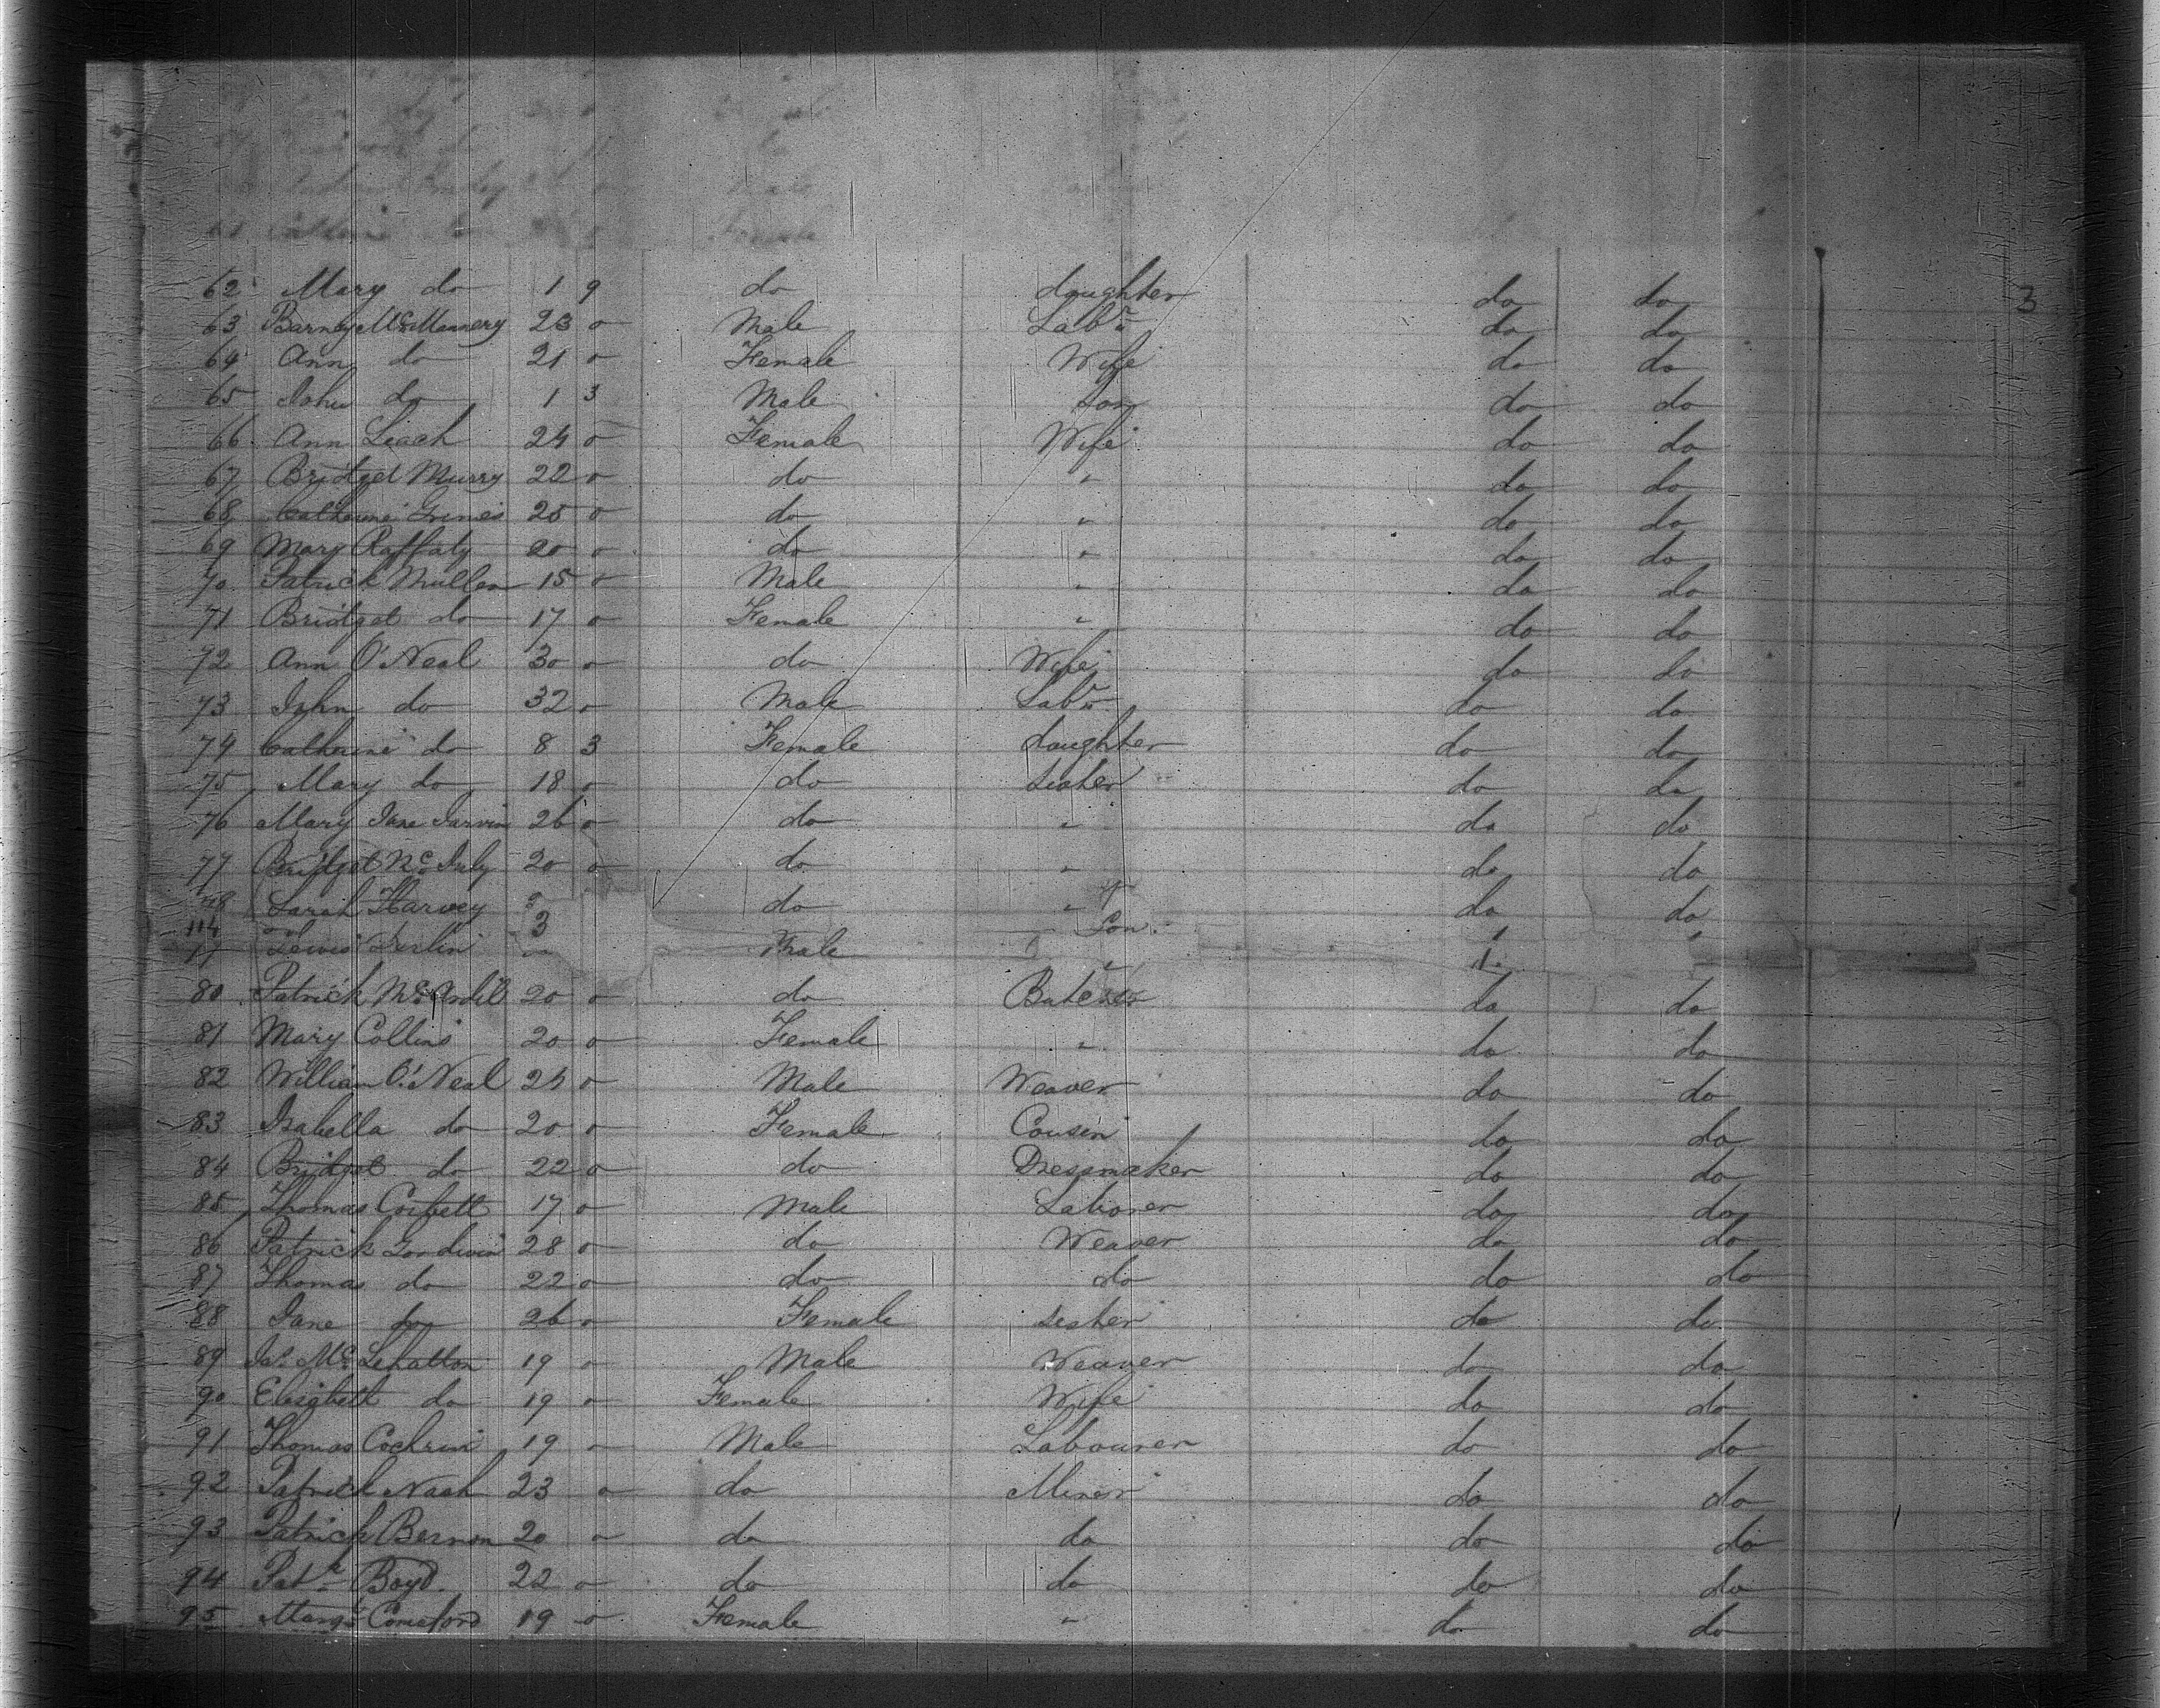 3
62 Mary do 1 9 do daughter do do
63 Barney 23 o Male Labr do do
64 Ann do 21 o Female Wife do do
65 John do 1 3 Male Son do do
66 Ann Leach 24 o Female Wife do do
67 Bridget Murry 22 o do " do do
68 Catherine Grimes 25 o do " do do
69 Mary Raffaty 20 o do " do do
70 Patrick Mullen 15 o Male " do do
71 Bridget do 17 o Female " do do
72 Ann O'Neal 30 o do Wife do do
73 John do 32 o Male Labr do do
74 Catherine do 8 3 Female daughter do do
75 Mary do 18 o do sister do do
76 Mary Jane 26 o do " do do
77 Bridget 20 o do " do do
Sarah Harvey do " do do
114 3 Son
Male
80 Patrick 20 o do do do
81 Mary Collins 20 o Female " do do
82 William O'Neal 24 o Male Weaver do do
83 Isabella do 20 o Female Cousin do do
84 Bridget do 22 o do Dressmaker do do
85 Thomas Corbett 17 o Male Laborer do do
86 Patrick 28 o do Weaver do do
87 Thomas do 22 o do do do do
88 Jane do 26 o Female sister do do
89 19 o Male Weaver do do
90 Elisabett do 19 o Female Wife do do
91 Thomas Cochrin 19 o Male Labourer do do
92 Patrick Nash 23 o do Miner do do
93 Patrick Bernon 20 o do do do do
94 Patk Boyd 22 o do do do do
95 Margt Comeford 19 o Female " do do